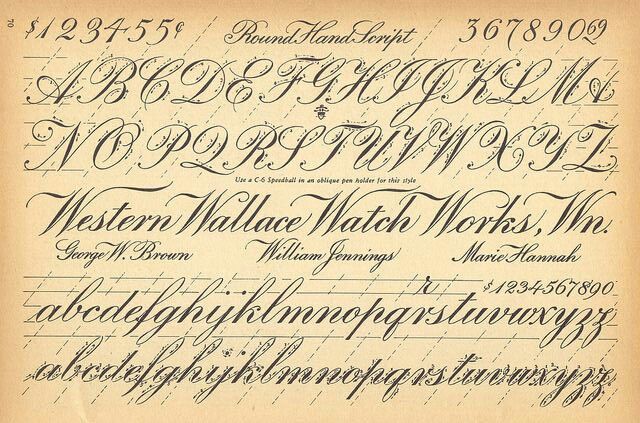 70
$12345 5¢ Round Hand Script 36789069
ABCDEFGHIJKLM&
NOPQRSTUVWXYZ
Use a C-6 Speedball in an oblique pen holder for this style
Western Wallace Watch Works, Wn.
George W. Brown William Jennings Marie Hannah
r $1234567890
abcdefghijklmnopqrstuvwxyzz
abcdefghijklmnopqrstuvwxyzz